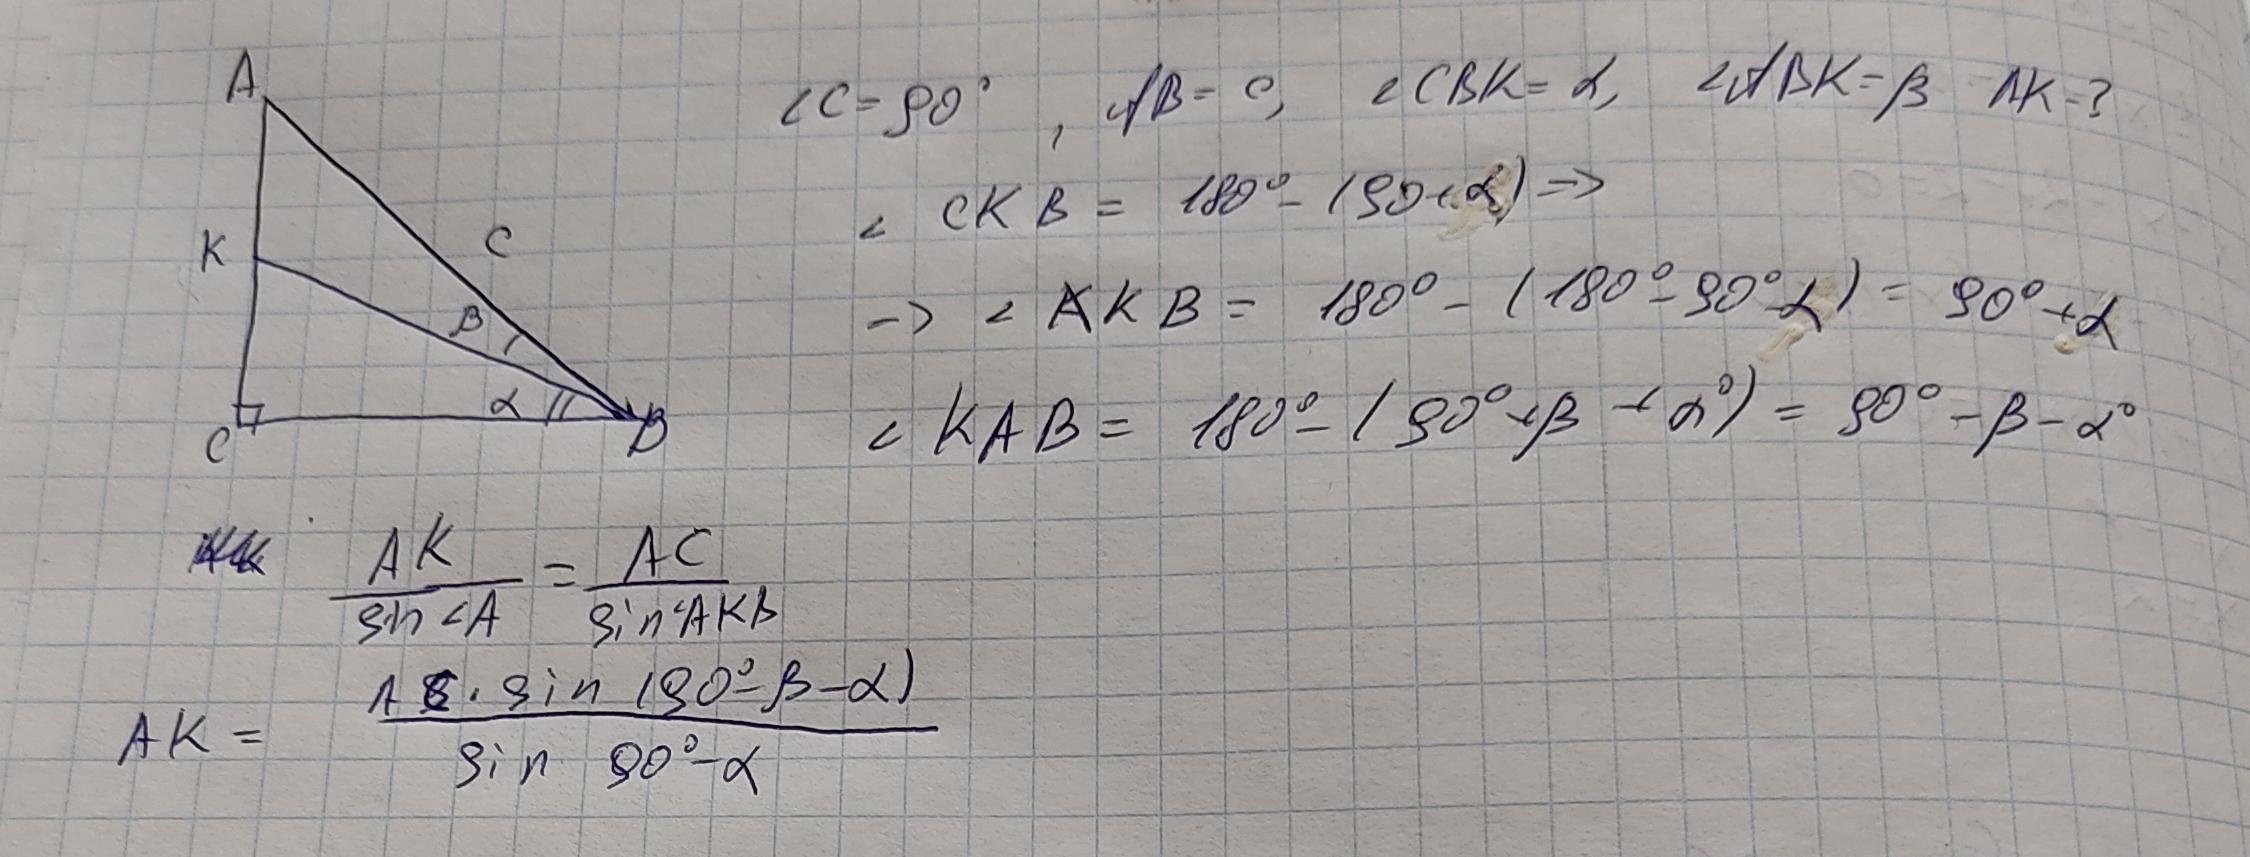 A
K
C
B
C
β
α
∠C=90°, AB=c, ∠CBK=α, ∠ABK=β AK-?
∠ CKB = 180°-(90+α) =>
=> ∠ AKB = 180°-(180°-90°-α) = 90°+α
∠ KAB = 180°-(90°+β+α°) = 90°-β-α°
AK/sin∠A = AC/sin∠AKB
AK = AC·sin(90°-β-α)/sin 90°-α